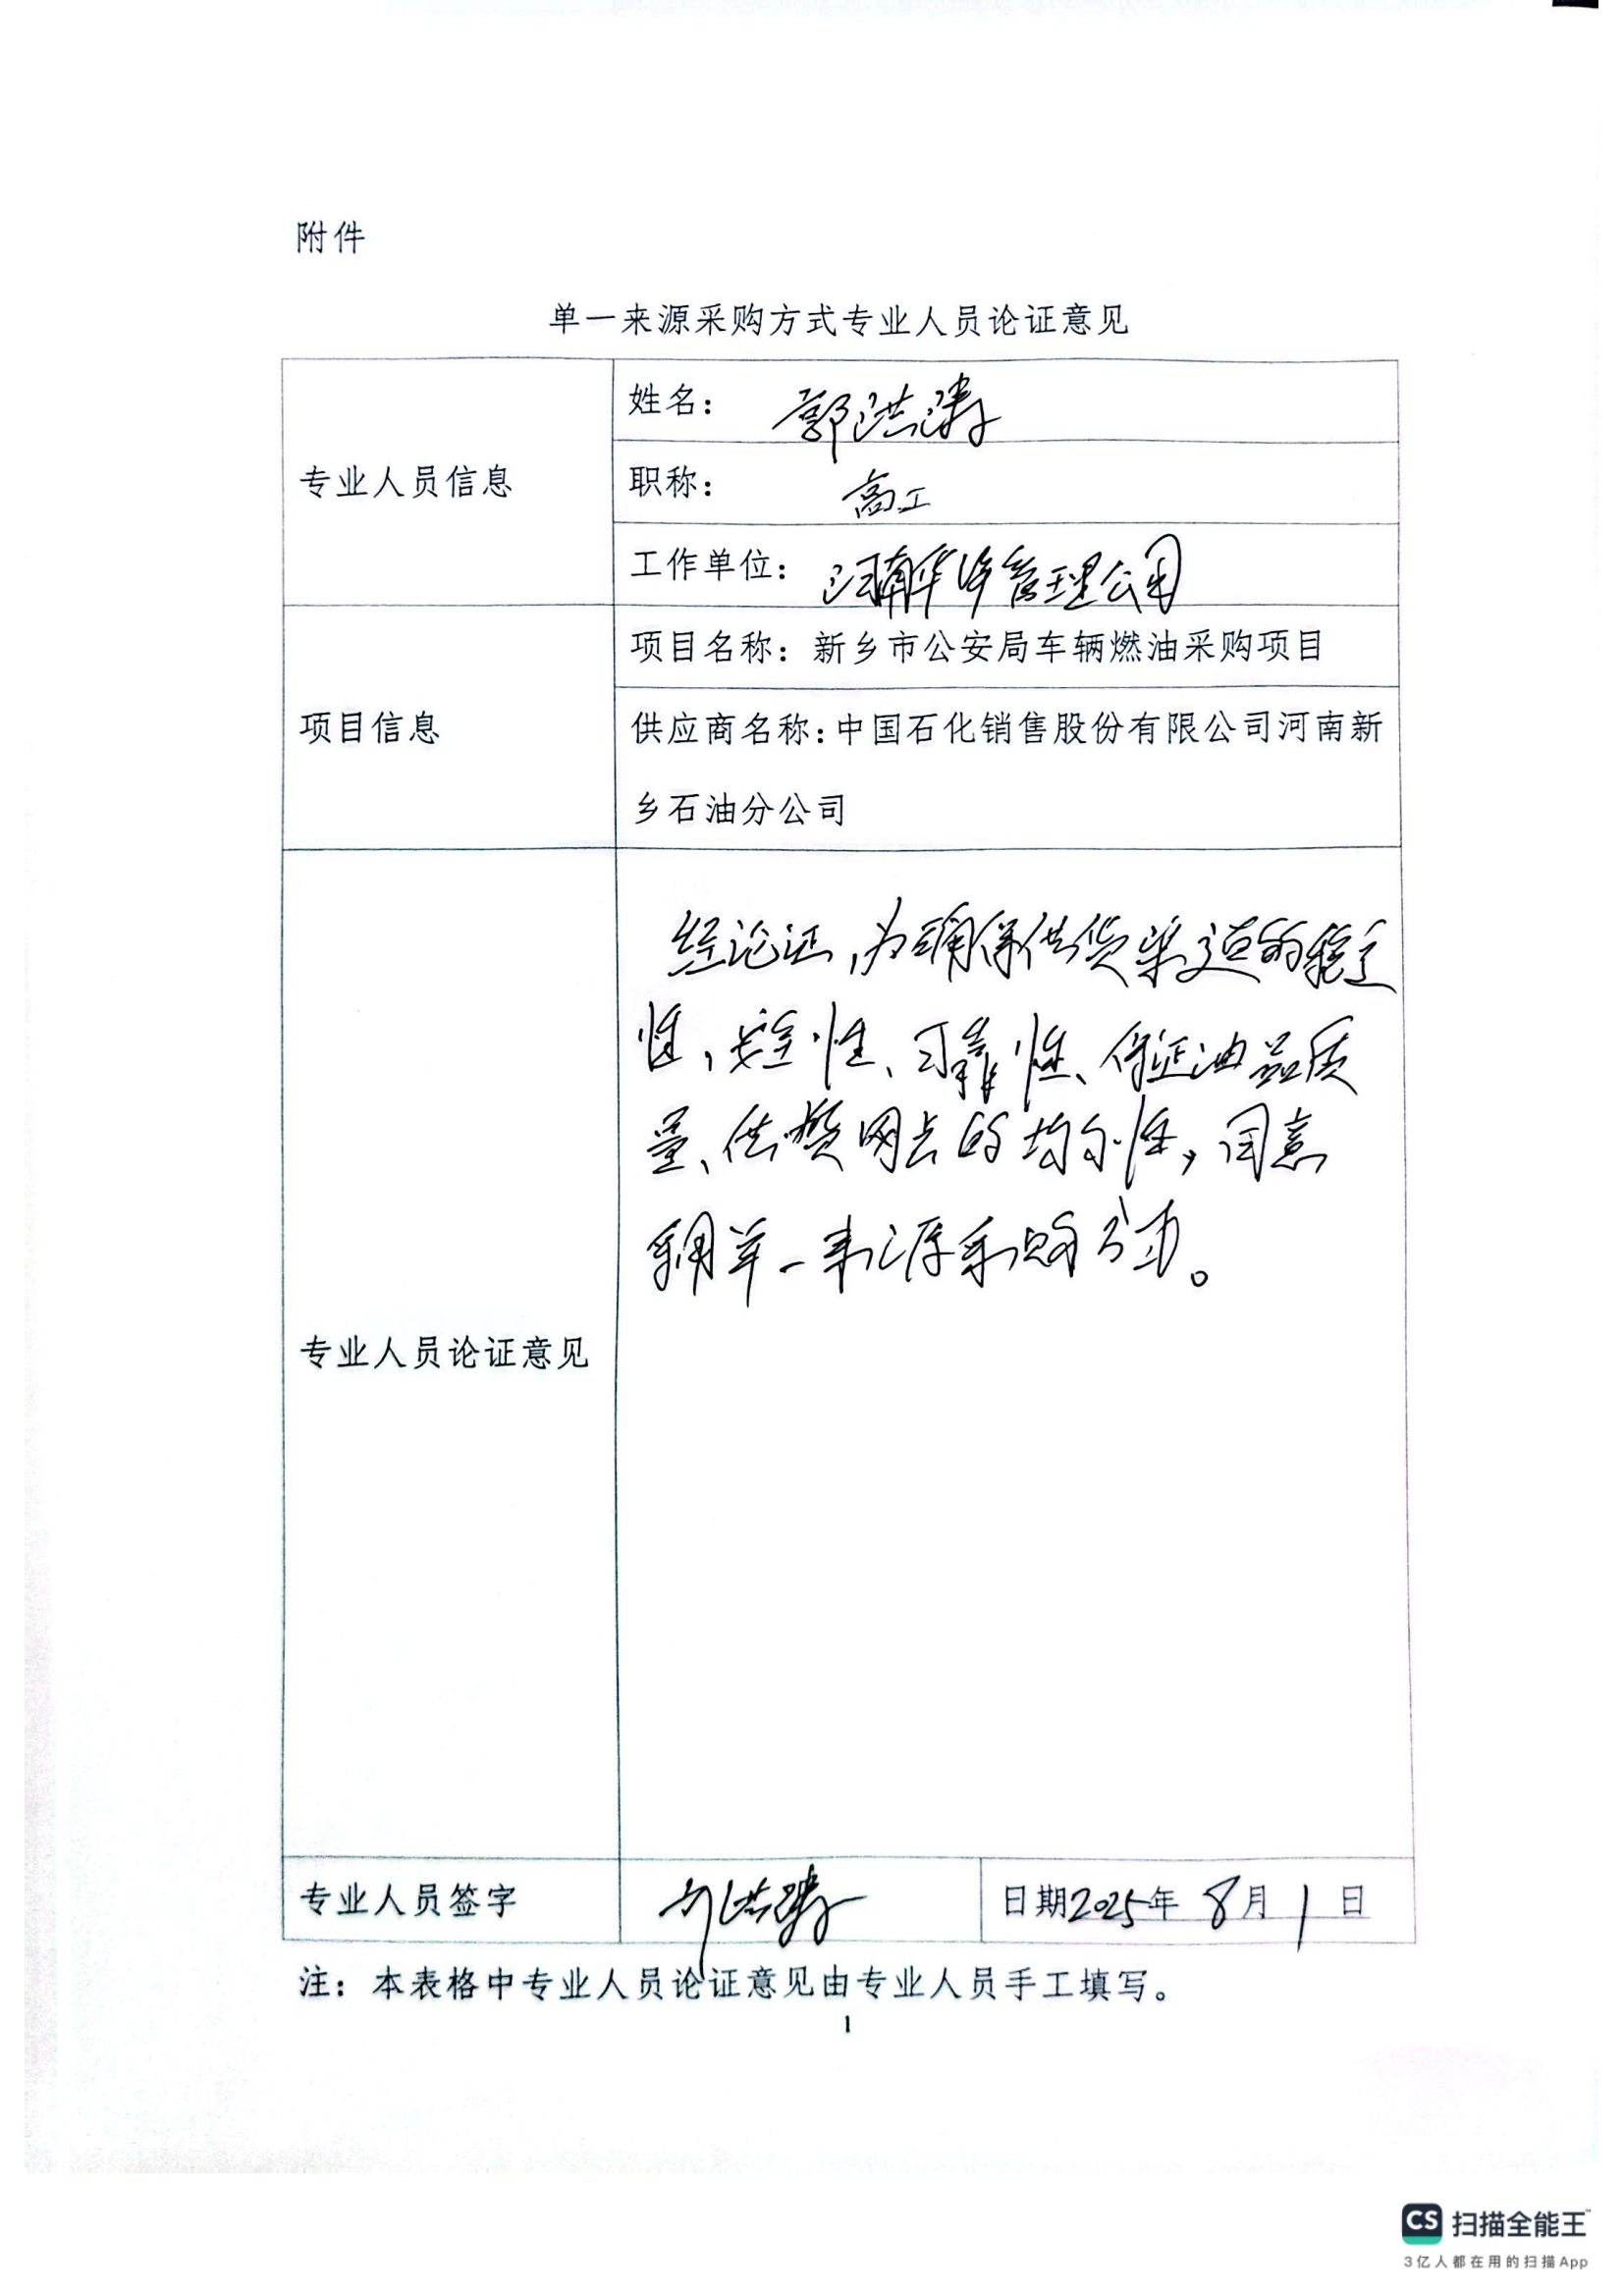 附件
单一来源采购方式专业人员论证意见
专业人员信息
姓名： 郭洪涛
职称： 高工
工作单位： 河南华 管理公司
项目信息
项目名称：新乡市公安局车辆燃油采购项目
供应商名称：中国石化销售股份有限公司河南新
乡石油分公司
专业人员论证意见
经论证，为确保供货渠道的稳定
性、安全性、可靠性、保证油品质
量、供货网点的均 性，同意
采用单一来源采购方式。
专业人员签字
郭洪涛
日期2025年 8月 1 日
注：本表格中专业人员论证意见由专业人员手工填写。
1
CS 扫描全能王
3亿人都在用的扫描App